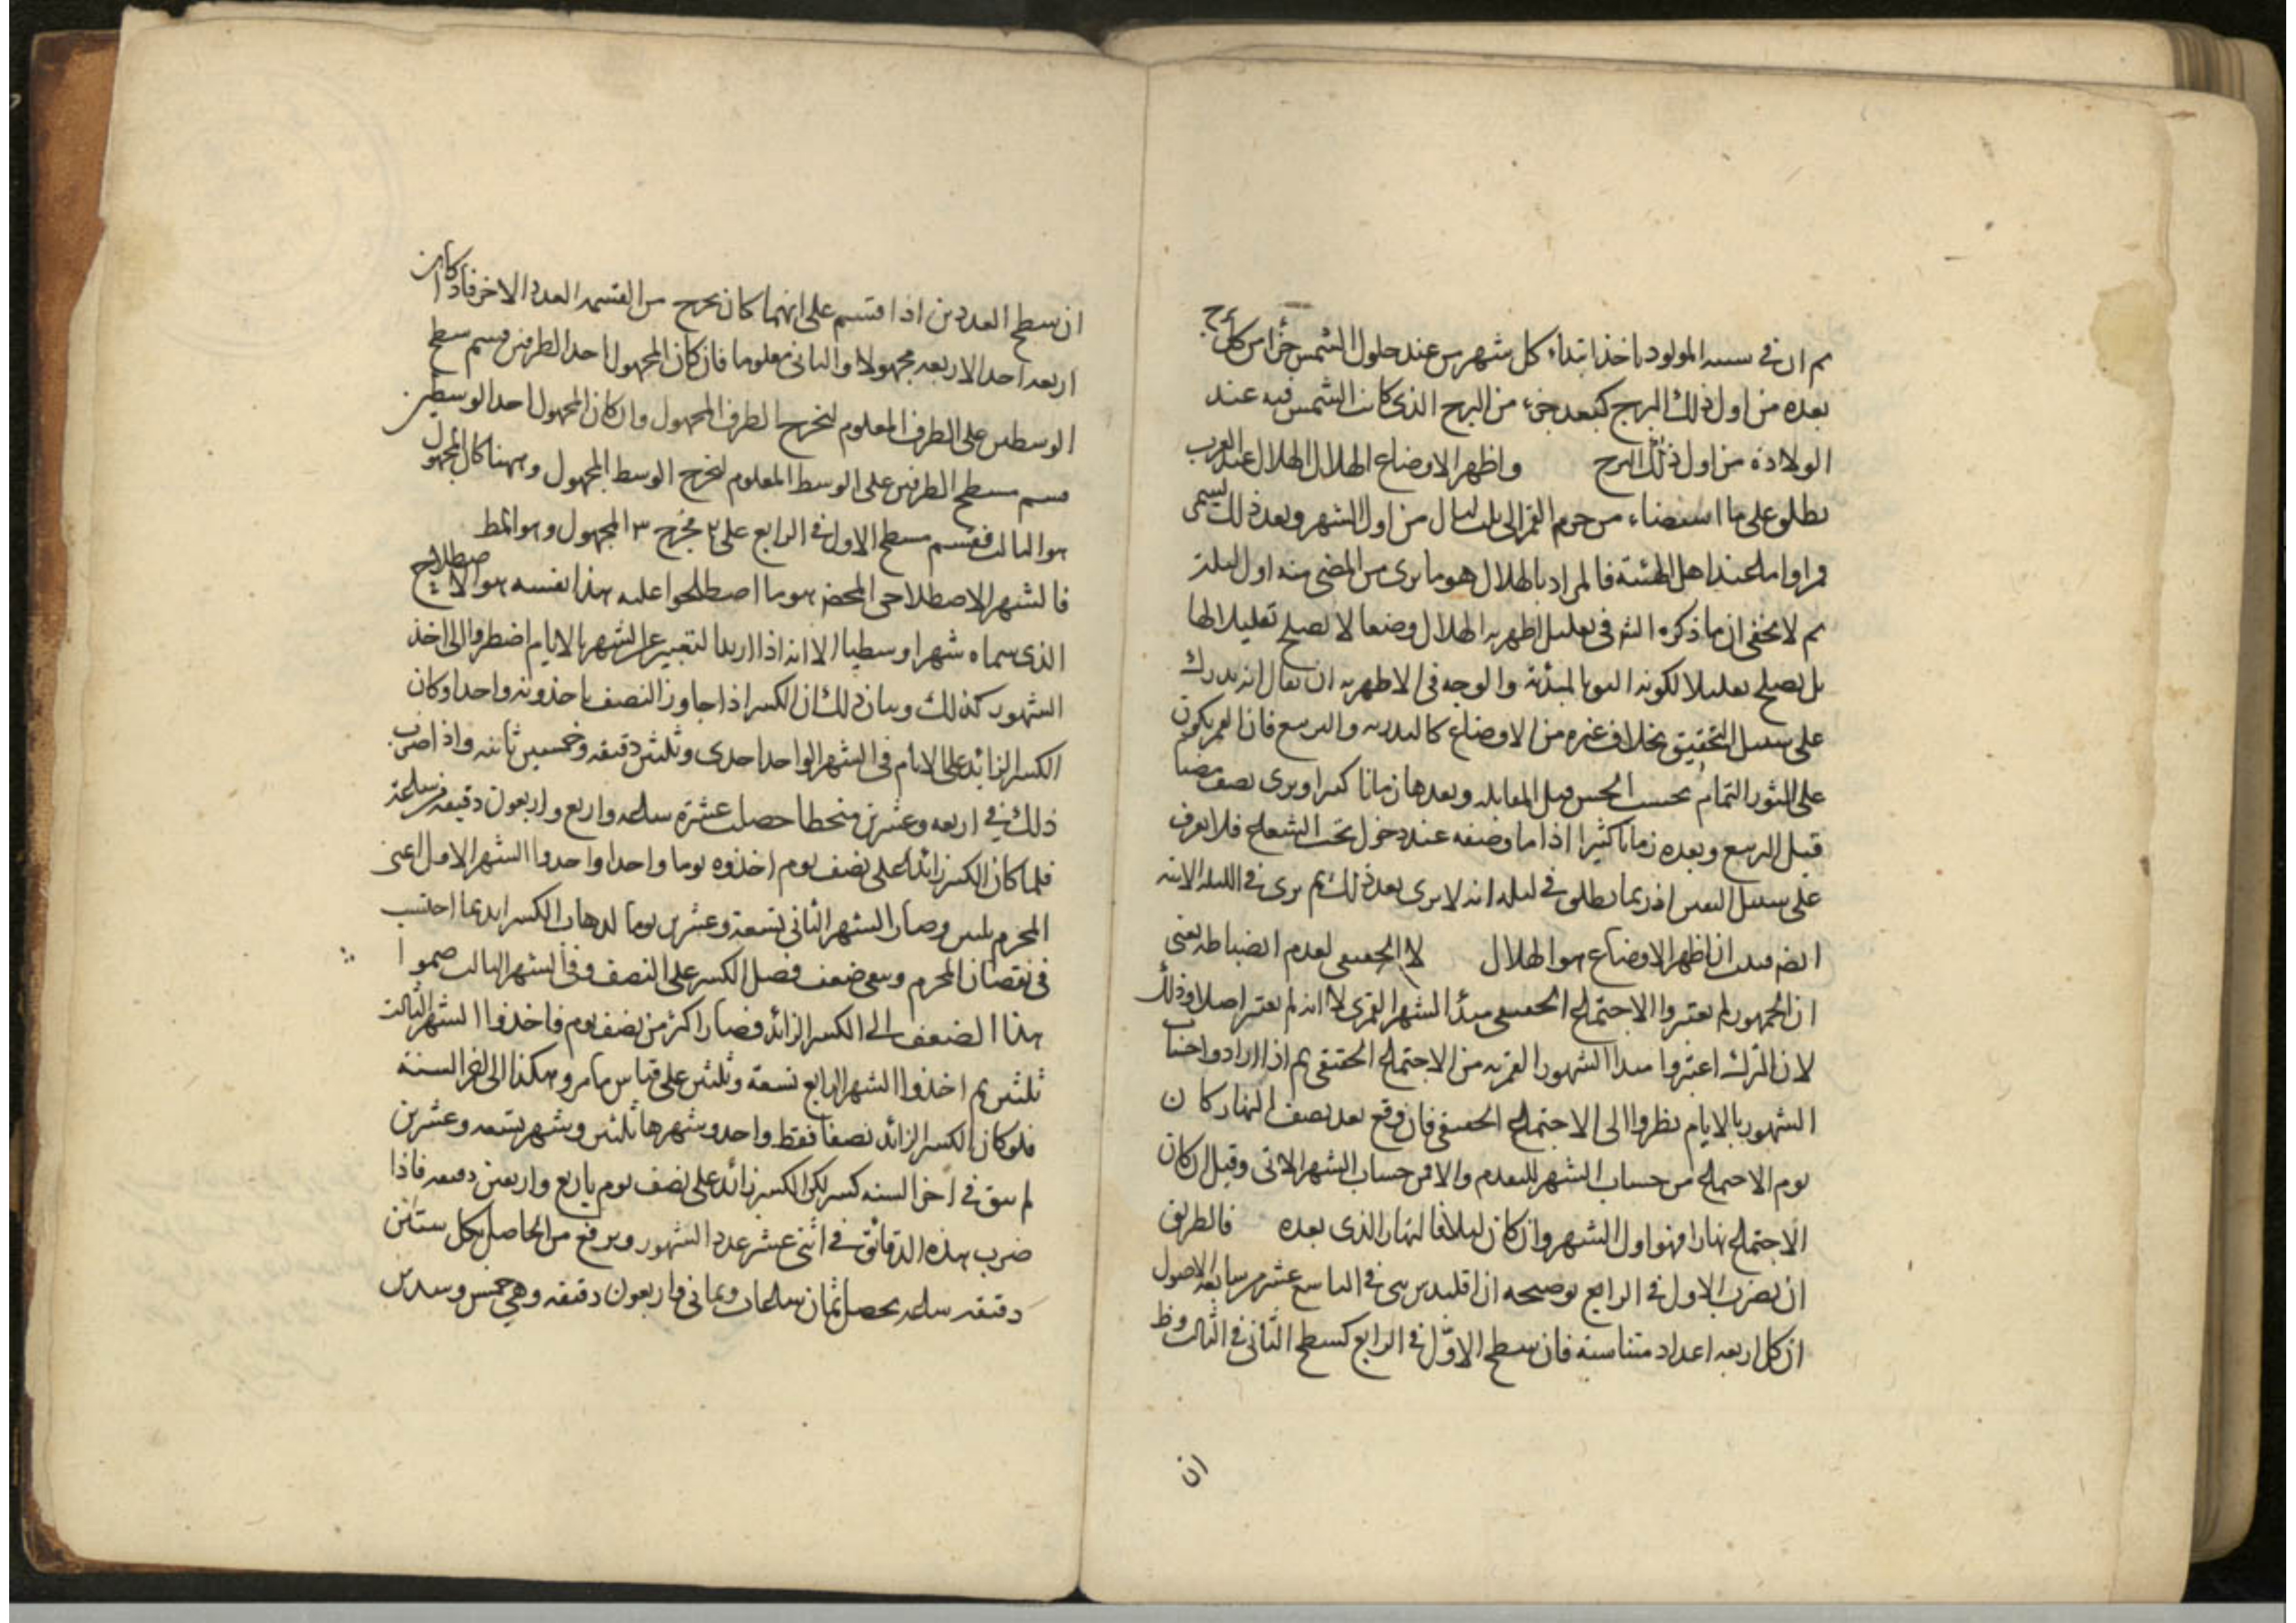 ثم ان في سنه المولود ياخذ ابتداء كل شهر من عند حلول الشمس جزأ من كل برج
بعده من اول ذلك البرج كبعد جزء من البرج الذى كانت الشمس فيه عند
الولادة من اول ذلك البرح واظهر الاوضاع الهلال الهلال عند العرب
يطلق على ما استضاء من جرم القمر الى ثلث ليال من اول الشهر وبعد ذلك يسمى
قمرا واما عند اهل الهيئة فالمراد بالهلال هو ما يرى من المضى منه اول ليلة
ثم لا يخفى ان ما ذكره الش فى تعليل اظهريه الهلال وضعا لا يصلح تعليلا لها
بل يصلح تعليلا لكونه اليق بالمبدئية والوجه فى الاظهريه ان يقال انه يدرك
على سبيل التحقيق بخلاف غيره من الاوضاع كالبدريه والتربيع فان القمر يكون
على النور التمام بحسب الحس قبل المقابله وبعدها زمانا كثيرا ويرى نصف مضيا
قبل التربيع وبعده زمانا كثيرا اذا ما وضعه عند دخول تحت الشعاع فلا يعرف
على سبيل التعين اذ ربما يطلق في ليله انه لا يرى بعد ذلك ثم يرى في الليله الاتيه
ايضا فثبت ان اظهر الاوضاع هو الهلال لا الحقيقى لعدم انضباطه يعنى
ان الجمهور لم يعتبروا الاجتماع الحقيقى مبدأ الشهر القمرى لا انه لم يعتبر اصلا وذلك
لان الترك اعتبروا مبدا الشهور القمريه من الاجتماع الحقيقى ثم اذا ارادوا حساب
الشهور بالايام نظروا الى الاجتماع الحقيقى فان وقع بعد نصف النهار كان
يوم الاجتماع من حساب الشهر المتقدم والا فمن حساب الشهر الاتى وقيل ان كان
الاجتماع نهارا فهو اول الشهر وان كان ليلا فالنهار الذى بعده فالطريق
ان يضرب الاول في الرابع توضيحه ان اقليدس بين في التاسع عشر من سابعه الاصول
ان كل اربعه اعداد متناسبة فان سطح الاول في الرابع كسطح الثانى في الثالث وظ
ان
ان سطح العددين اذا قسم على ايهما كان يخرج من القسمه العدد الاخر فاذا كان
اربعه احد الاربعه مجهولا والباقى معلوما فان كان المجهول احد الطرفين قسم سطح
الوسطين على الطرف المعلوم ليخرج الطرف المجهول وان كان المجهول احد الوسطين
قسم مسطح الطرفين على الوسط المعلوم ليخرج الوسط المجهول وههنا كان المجهول
هو الثالث فقسم مسطح الاول في الرابع على ٢ فيخرج ٣ المجهول وهو المط
فالشهر الاصطلاحى المحض هو ما اصطلحوا عليه هذا نفسه هو الاصطلاح
الذى سماه شهرا وسطيا الا انه اذا اريد التعبير عن الشهر بالايام اضطروا الى اخذ
الشهور كذلك وبيان ذلك ان الكسر اذا جاوز النصف ياخذونه واحدا وكان
الكسر الزائد على الايام فى الشهر الواحد احدى وثلثين دقيقه وخمسين ثانيه واذا ضرب
ذلك في اربعه وعشرين منحطا حصلت عشرة ساعه واربع واربعون دقيقه من ساعة
فلما كان الكسر زائدا على نصف يوم اخذوه يوما واحدا واخذوا الشهر الاول اعنى
المحرم ثلثين وصار الشهر الثانى تسعة وعشرين يوما لذهاب الكسر الزائد بما احتسب
فى نقصان المحرم وبقى ضعف فضل الكسر على النصف وفى الشهر الثالث ضموا
هذا الضعف الى الكسر الزائد فصار اكثر من نصف يوم فاخذوا الشهر الثالث
ثلثين ثم اخذوا الشهر الرابع تسعة وثلثين على قياس ما مر وهكذا الى اخر السنة
فلو كان الكسر الزائد نصفا فقط واخذ وشهرها ثلثين وشهر تسعه وعشرين
لم يبق في اخر السنه كسر لكن الكسر زائد على نصف يوم باربع واربعين دقيقه فاذا
ضرب هذه الدقائق في اثنى عشر عدد الشهور ويرفع من الحاصل بكل ستين
دقيقه ساعه يحصل ثمان ساعات وثمانى واربعون دقيقه وهى خمس وسدس